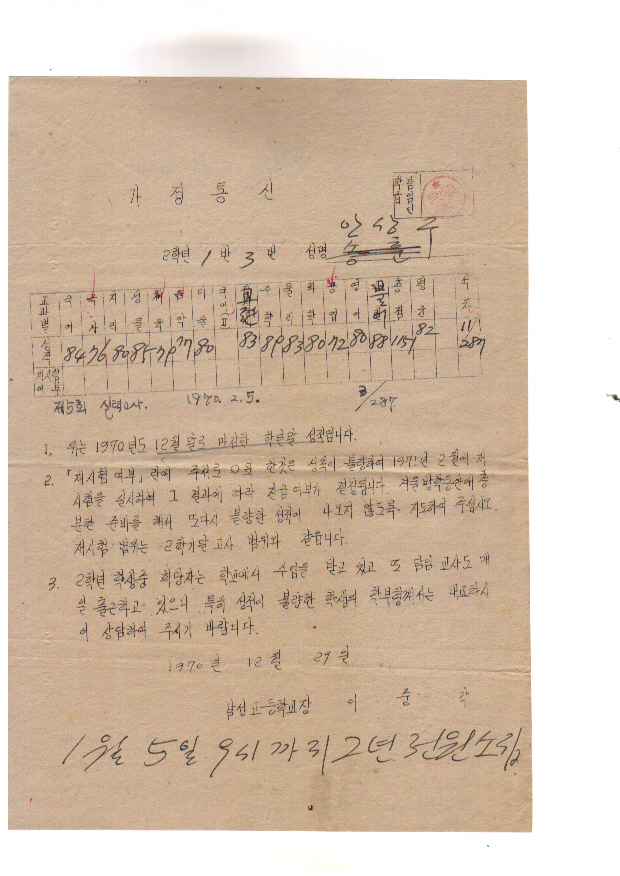 가정통신
학급 담임인
안상수
2학년 1반 3번 성명
교과별 국어 국사 지리 생물 체육 음악 미술 수학 물리 화학 영어 총점 평균 석차
성적 84 76 80 85 79 77 80 83 89 83 80 72 80 88 1151 82 11/287
재시험여부
제5회 실력고사. 1970. 2. 5. 3/287
1. 위는 1970년도 12월 말로 마감한 학년말 성적입니다.
2. 「재시험여부」란에 주서로 O표 한것은 성적이 불량하여 1971년 2월에 재
시험을 실시하여 그 결과에 따라 진급여부가 결정됩니다. 겨울방학동안에 충
분한 준비를 해서 또다시 불량한 성적이 나오지 않도록 지도하여 주십시오.
재시험 범위는 2학기말 고사 범위와 같습니다.
3. 2학년 학생중 희망자는 학교에서 수업을 받고 있고 또 담임 교사도 매
일 출근하고 있으니 특히 성적이 불량한 학생의 학부형께서는 내교하시
어 상담하여 주시기 바랍니다.
1970년 12월 29일
고등학교장 이중각
1월 5일 9시까지 2년 전원소집